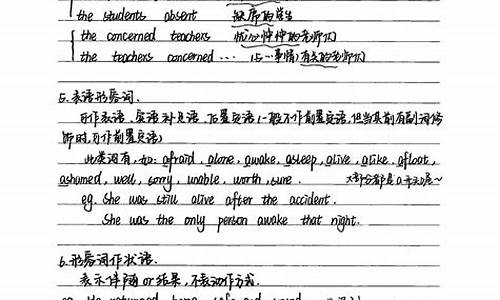 the students absent 缺席的学生
the concerned teachers 忧心忡忡的老师们
the teachers concerned … (与…事情)有关的老师们
5. 表语形容词.
可作表语、宾语补足语、后置定语(一般不作前置定语,但当其前有副词修
饰时,可作前置定语)
此类词有,如: afraid, alone, awake, asleep, alive, alike, afloat,
ashamed, well, sorry, unable, worth, sure. 大部分都是a开头
eg. She was still alive after the accident.
She was the only person awake that night.
6. 形容词作状语.
表示伴随 or 结果, 不表动作方式.
He returned home safe and